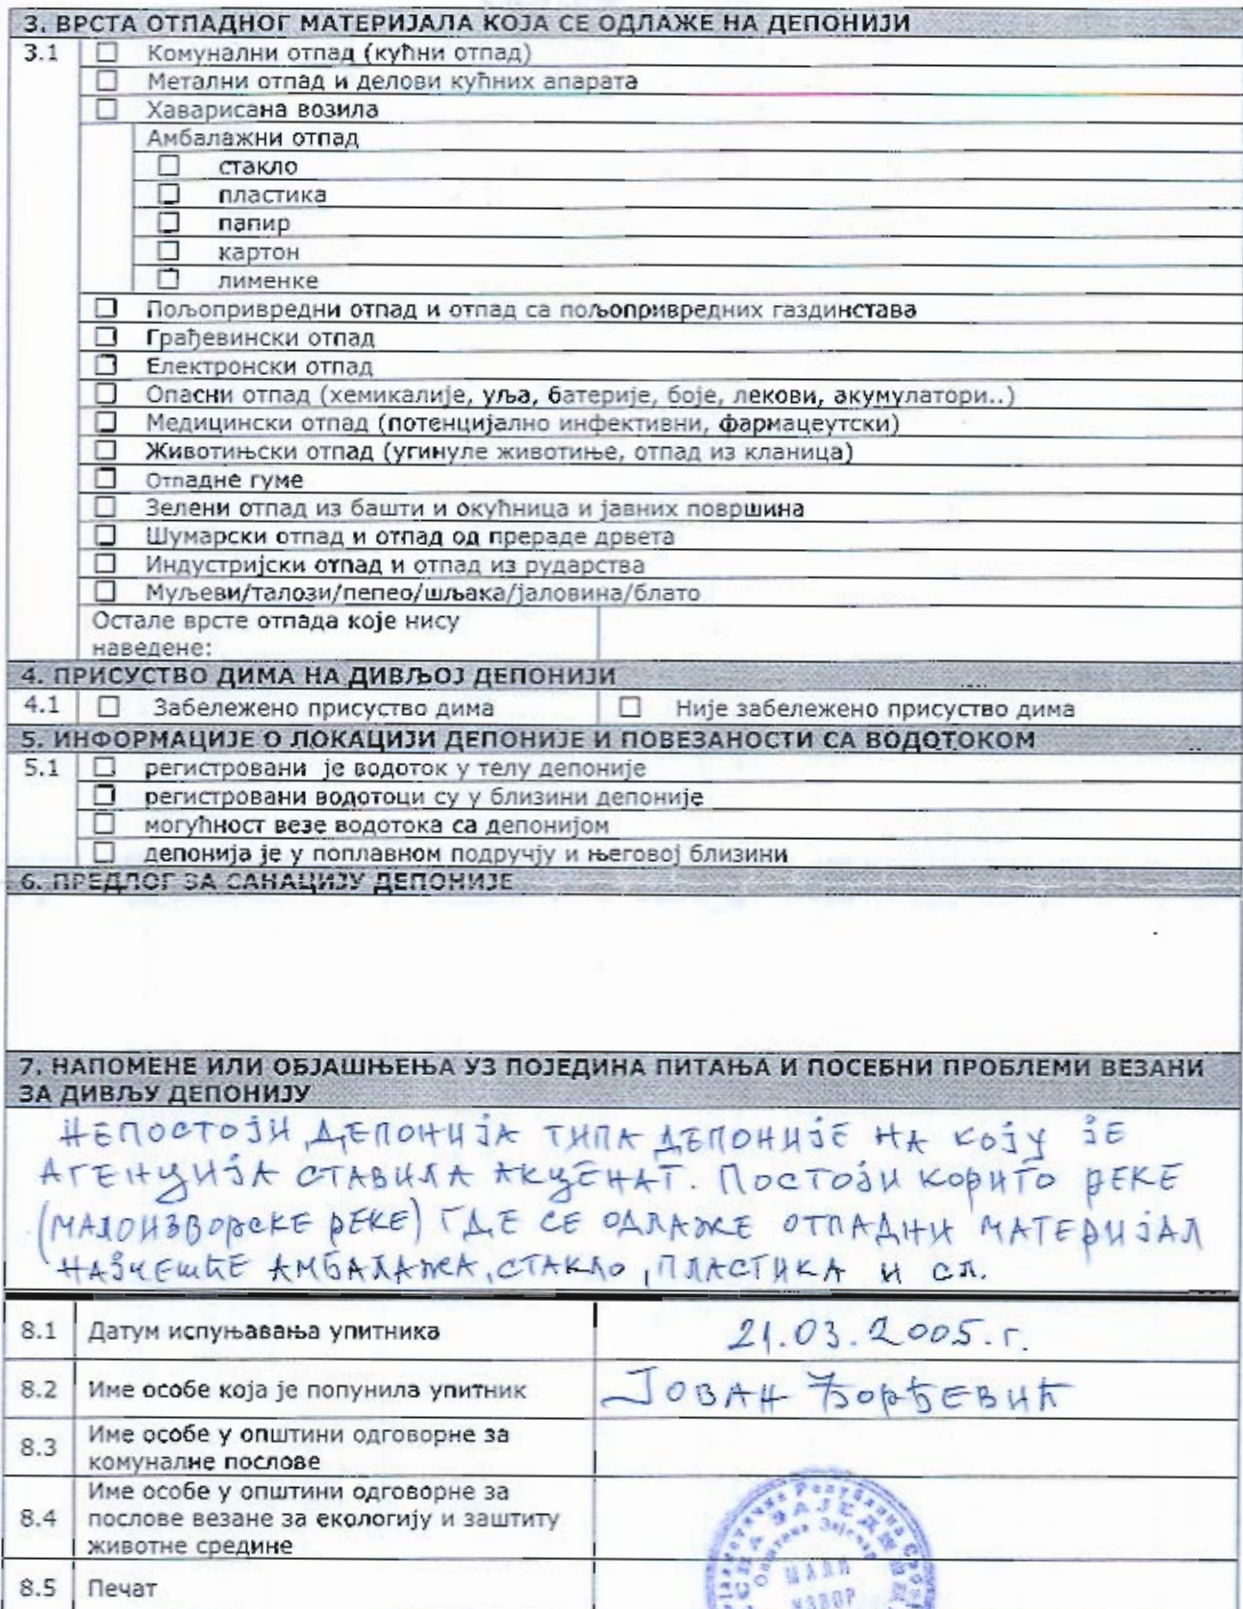 3. ВРСТА ОТПАДНОГ МАТЕРИЈАЛА КОЈА СЕ ОДЛАЖЕ НА ДЕПОНИЈИ
3.1 ☐ Комунални отпад (кућни отпад)
☐ Метални отпад и делови кућних апарата
☐ Хаварисана возила
Амбалажни отпад
☐ стакло
☐ пластика
☐ папир
☐ картон
☐ лименке
☐ Пољопривредни отпад и отпад са пољопривредних газдинстава
☐ Грађевински отпад
☐ Електронски отпад
☐ Опасни отпад (хемикалије, уља, батерије, боје, лекови, акумулатори..)
☐ Медицински отпад (потенцијално инфективни, фармацеутски)
☐ Животињски отпад (угинуле животиње, отпад из кланица)
☐ Отпадне гуме
☐ Зелени отпад из башти и окућница и јавних површина
☐ Шумарски отпад и отпад од прераде дрвета
☐ Индустријски отпад и отпад из рударства
☐ Муљеви/талози/пепео/шљака/јаловина/блато
Остале врсте отпада које нису
наведене:
4. ПРИСУСТВО ДИМА НА ДИВЉОЈ ДЕПОНИЈИ
4.1 ☐ Забележено присуство дима ☐ Није забележено присуство дима
5. ИНФОРМАЦИЈЕ О ЛОКАЦИЈИ ДЕПОНИЈЕ И ПОВЕЗАНОСТИ СА ВОДОТОКОМ
5.1 ☐ регистровани је водоток у телу депоније
☐ регистровани водотоци су у близини депоније
☐ могућност везе водотока са депонијом
☐ депонија је у поплавном подручју и његовој близини
6. ПРЕДЛОГ ЗА САНАЦИЈУ ДЕПОНИЈЕ
7. НАПОМЕНЕ ИЛИ ОБЈАШЊЕЊА УЗ ПОЈЕДИНА ПИТАЊА И ПОСЕБНИ ПРОБЛЕМИ ВЕЗАНИ
ЗА ДИВЉУ ДЕПОНИЈУ
НЕПОСТОЈИ ДЕПОНИЈА ТИПА ДЕПОНИЈЕ НА КОЈУ ЈЕ
АГЕНЦИЈА СТАВИЛА АКЦЕНАТ. ПОСТОЈИ КОРИТО РЕКЕ
(МАЛОИЗВОРСКЕ РЕКЕ) ГДЕ СЕ ОДЛАЖЕ ОТПАДНИ МАТЕРИЈАЛ
НАЈЧЕШЋЕ АМБАЛАЖА, СТАКЛО, ПЛАСТИКА И СЛ.
8.1 Датум испуњавања упитника 21.03.2005.г.
8.2 Име особе која је попунила упитник ЈОВАН ЂОРЂЕВИЋ
8.3 Име особе у општини одговорне за
комуналне послове
8.4 Име особе у општини одговорне за
послове везане за екологију и заштиту
животне средине
8.5 Печат
Република
Општина Зајечар
МАЛИ
ИЗВОР